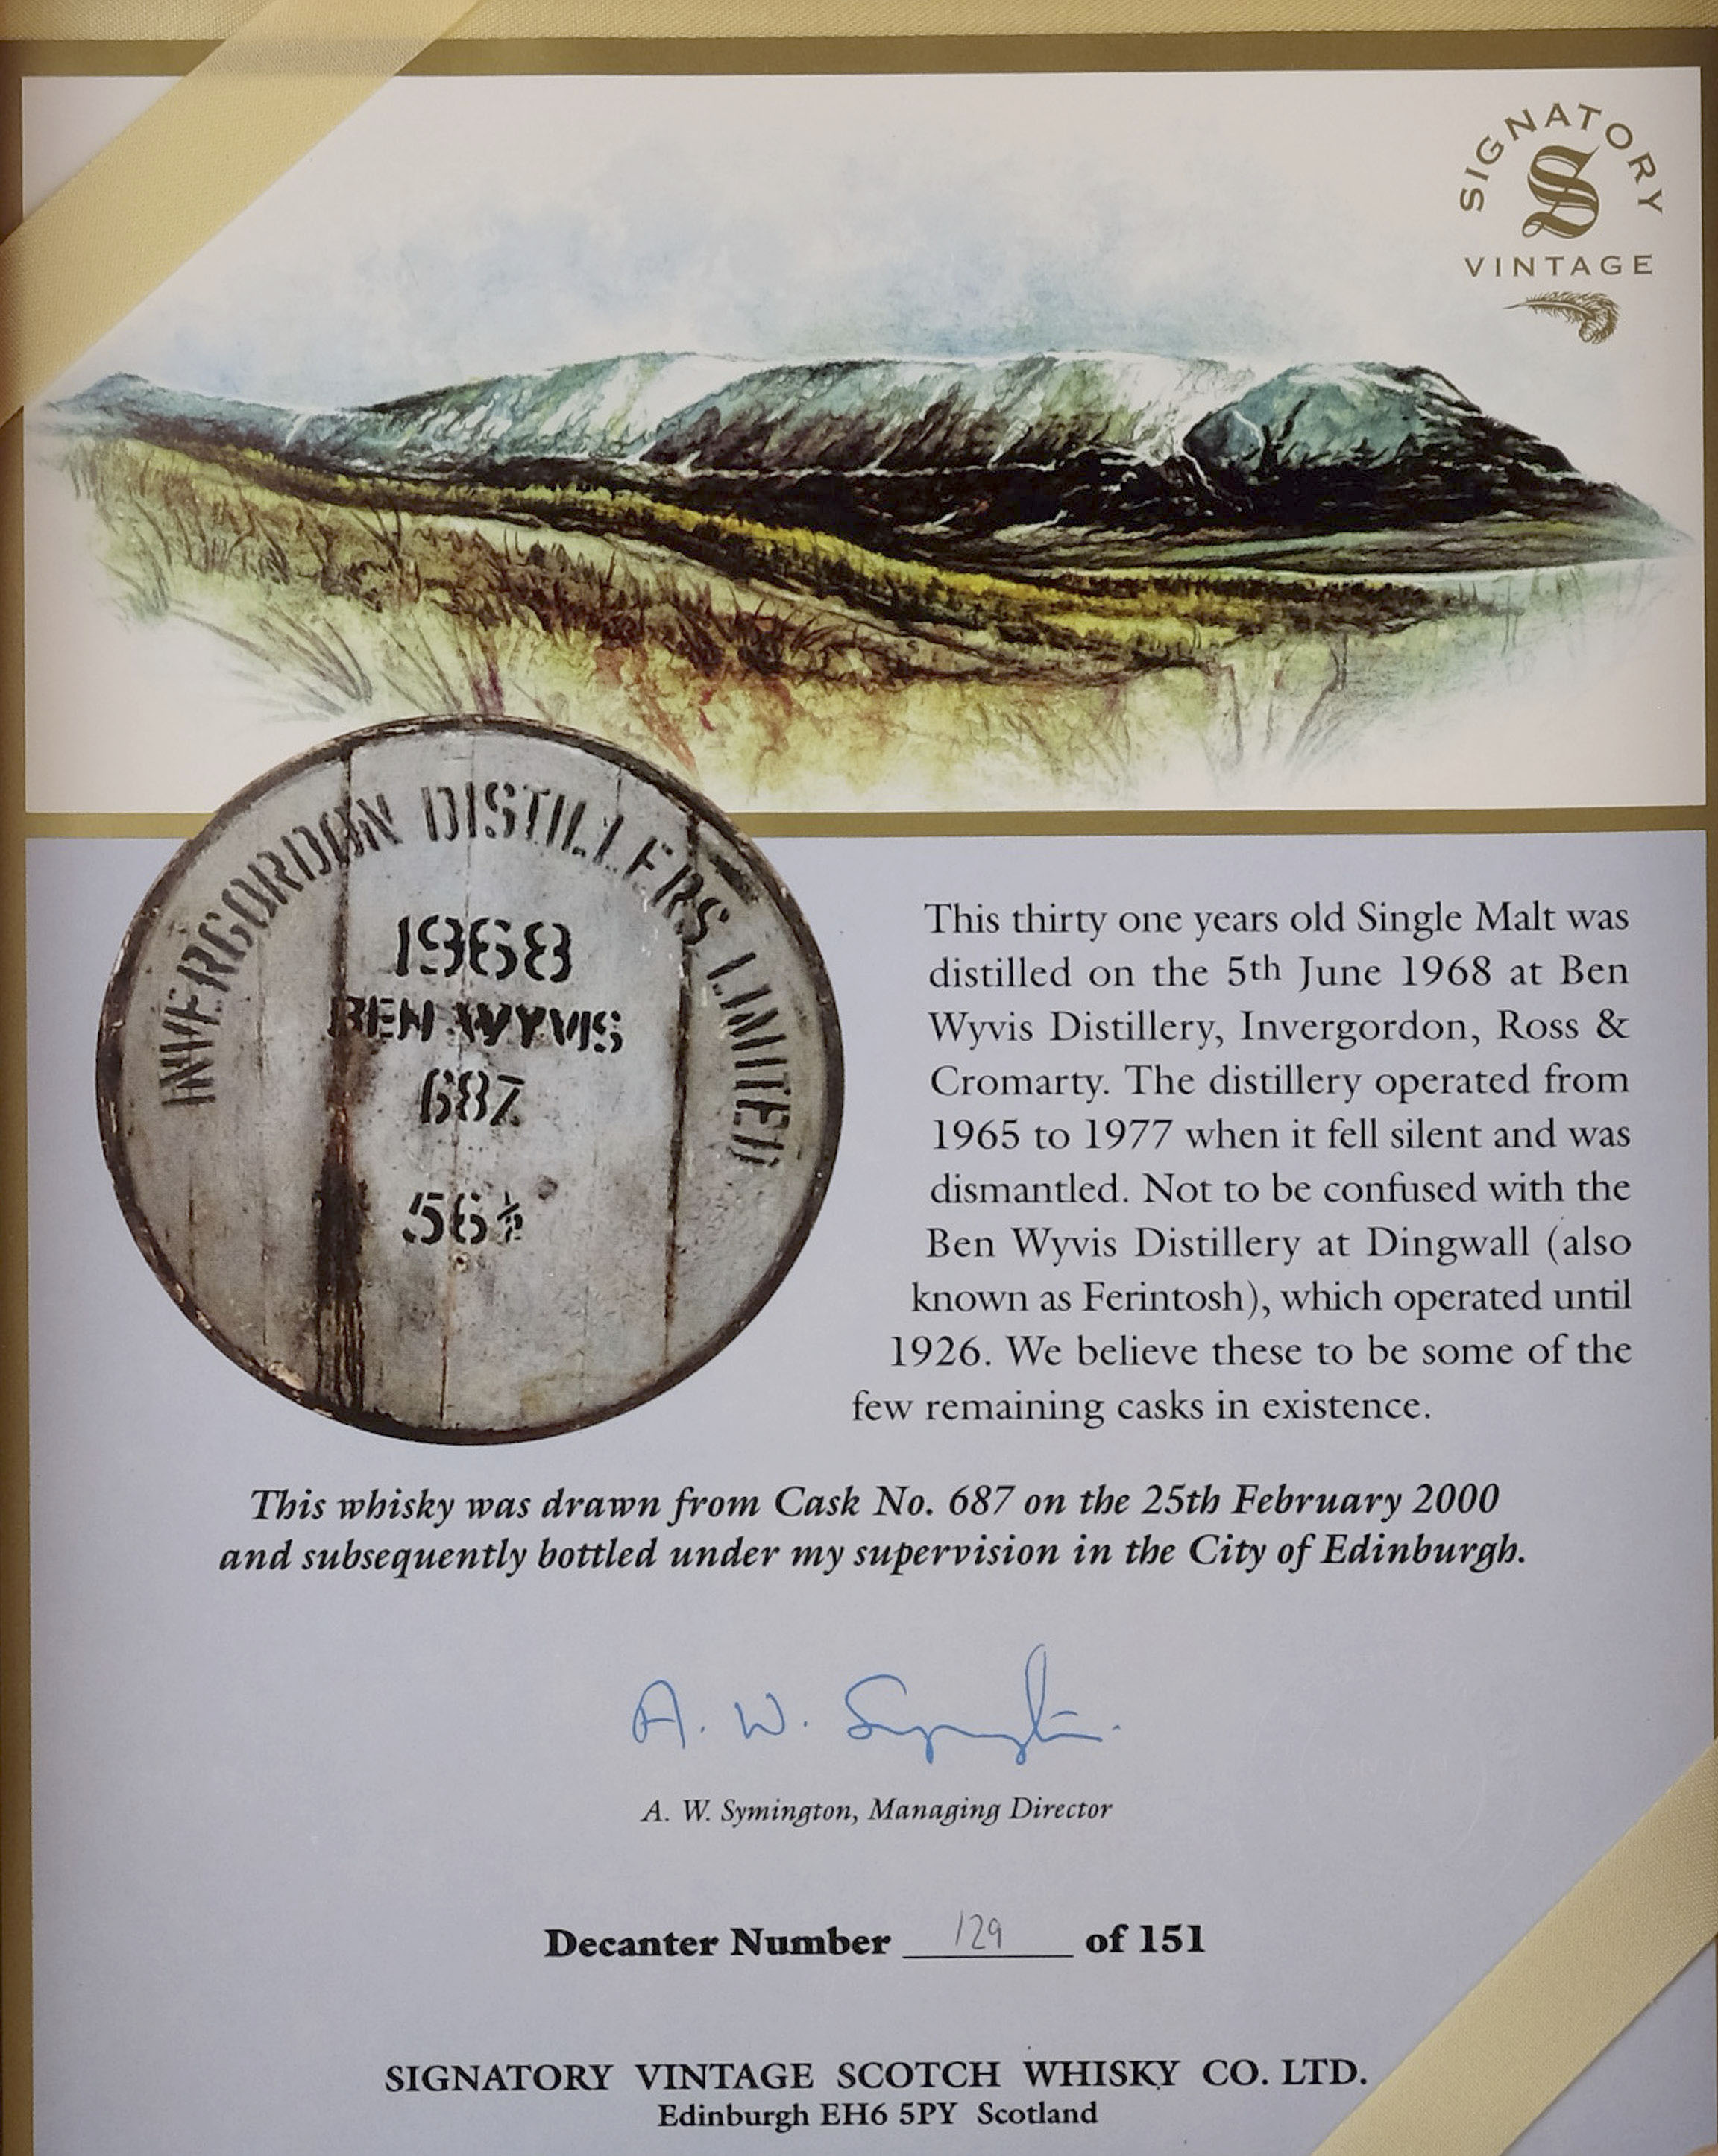 SIGNATORY
S
VINTAGE
INVERGORDON DISTILLERS LIMITED
1968
BEN WYVIS
687
56½
This thirty one years old Single Malt was
distilled on the 5th June 1968 at Ben
Wyvis Distillery, Invergordon, Ross &
Cromarty. The distillery operated from
1965 to 1977 when it fell silent and was
dismantled. Not to be confused with the
Ben Wyvis Distillery at Dingwall (also
known as Ferintosh), which operated until
1926. We believe these to be some of the
few remaining casks in existence.
This whisky was drawn from Cask No. 687 on the 25th February 2000
and subsequently bottled under my supervision in the City of Edinburgh.
A. W. Symington
A. W. Symington, Managing Director
Decanter Number 129 of 151
SIGNATORY VINTAGE SCOTCH WHISKY CO. LTD.
Edinburgh EH6 5PY Scotland